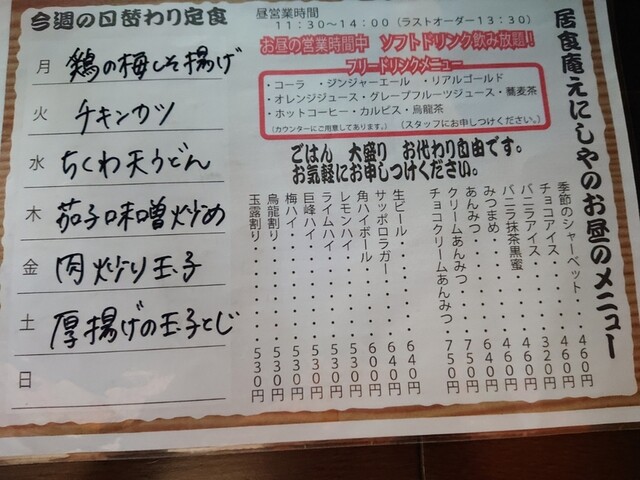 今週の日替わり定食
月 鶏の梅しそ揚げ
火 チキンカツ
水 ちくわ天うどん
木 茄子味噌炒め
金 肉炒り玉子
土 厚揚げの玉子とじ
日
昼営業時間
11:30～14:00（ラストオーダー13:30）
お昼の営業時間中 ソフトドリンク飲み放題！
フリードリンクメニュー
・コーラ ・ジンジャーエール ・リアルゴールド
・オレンジジュース・グレープフルーツジュース・蕎麦茶
・ホットコーヒー・カルピス・烏龍茶
（カウンターにご用意してあります。）（スタッフにお申しつけください。）
ごはん 大盛り お代わり自由です。
お気軽にお申しつけください。
居食庵えにしやのお昼のメニュー
季節のシャーベット・・460円
チョコアイス・・・・・320円
バニラアイス・・・・・460円
バニラ抹茶黒蜜・・・・460円
みつまめ・・・・・・・640円
あんみつ・・・・・・・750円
クリームあんみつ・・・750円
チョコクリームあんみつ・・750円
生ビール・・・・・・・640円
サッポロラガー・・・・640円
角ハイボール・・・・・600円
レモンハイ・・・・・・530円
ライムハイ・・・・・・530円
巨峰ハイ・・・・・・・530円
梅ハイ・・・・・・・・530円
烏龍割り・・・・・・・530円
玉露割り・・・・・・・530円